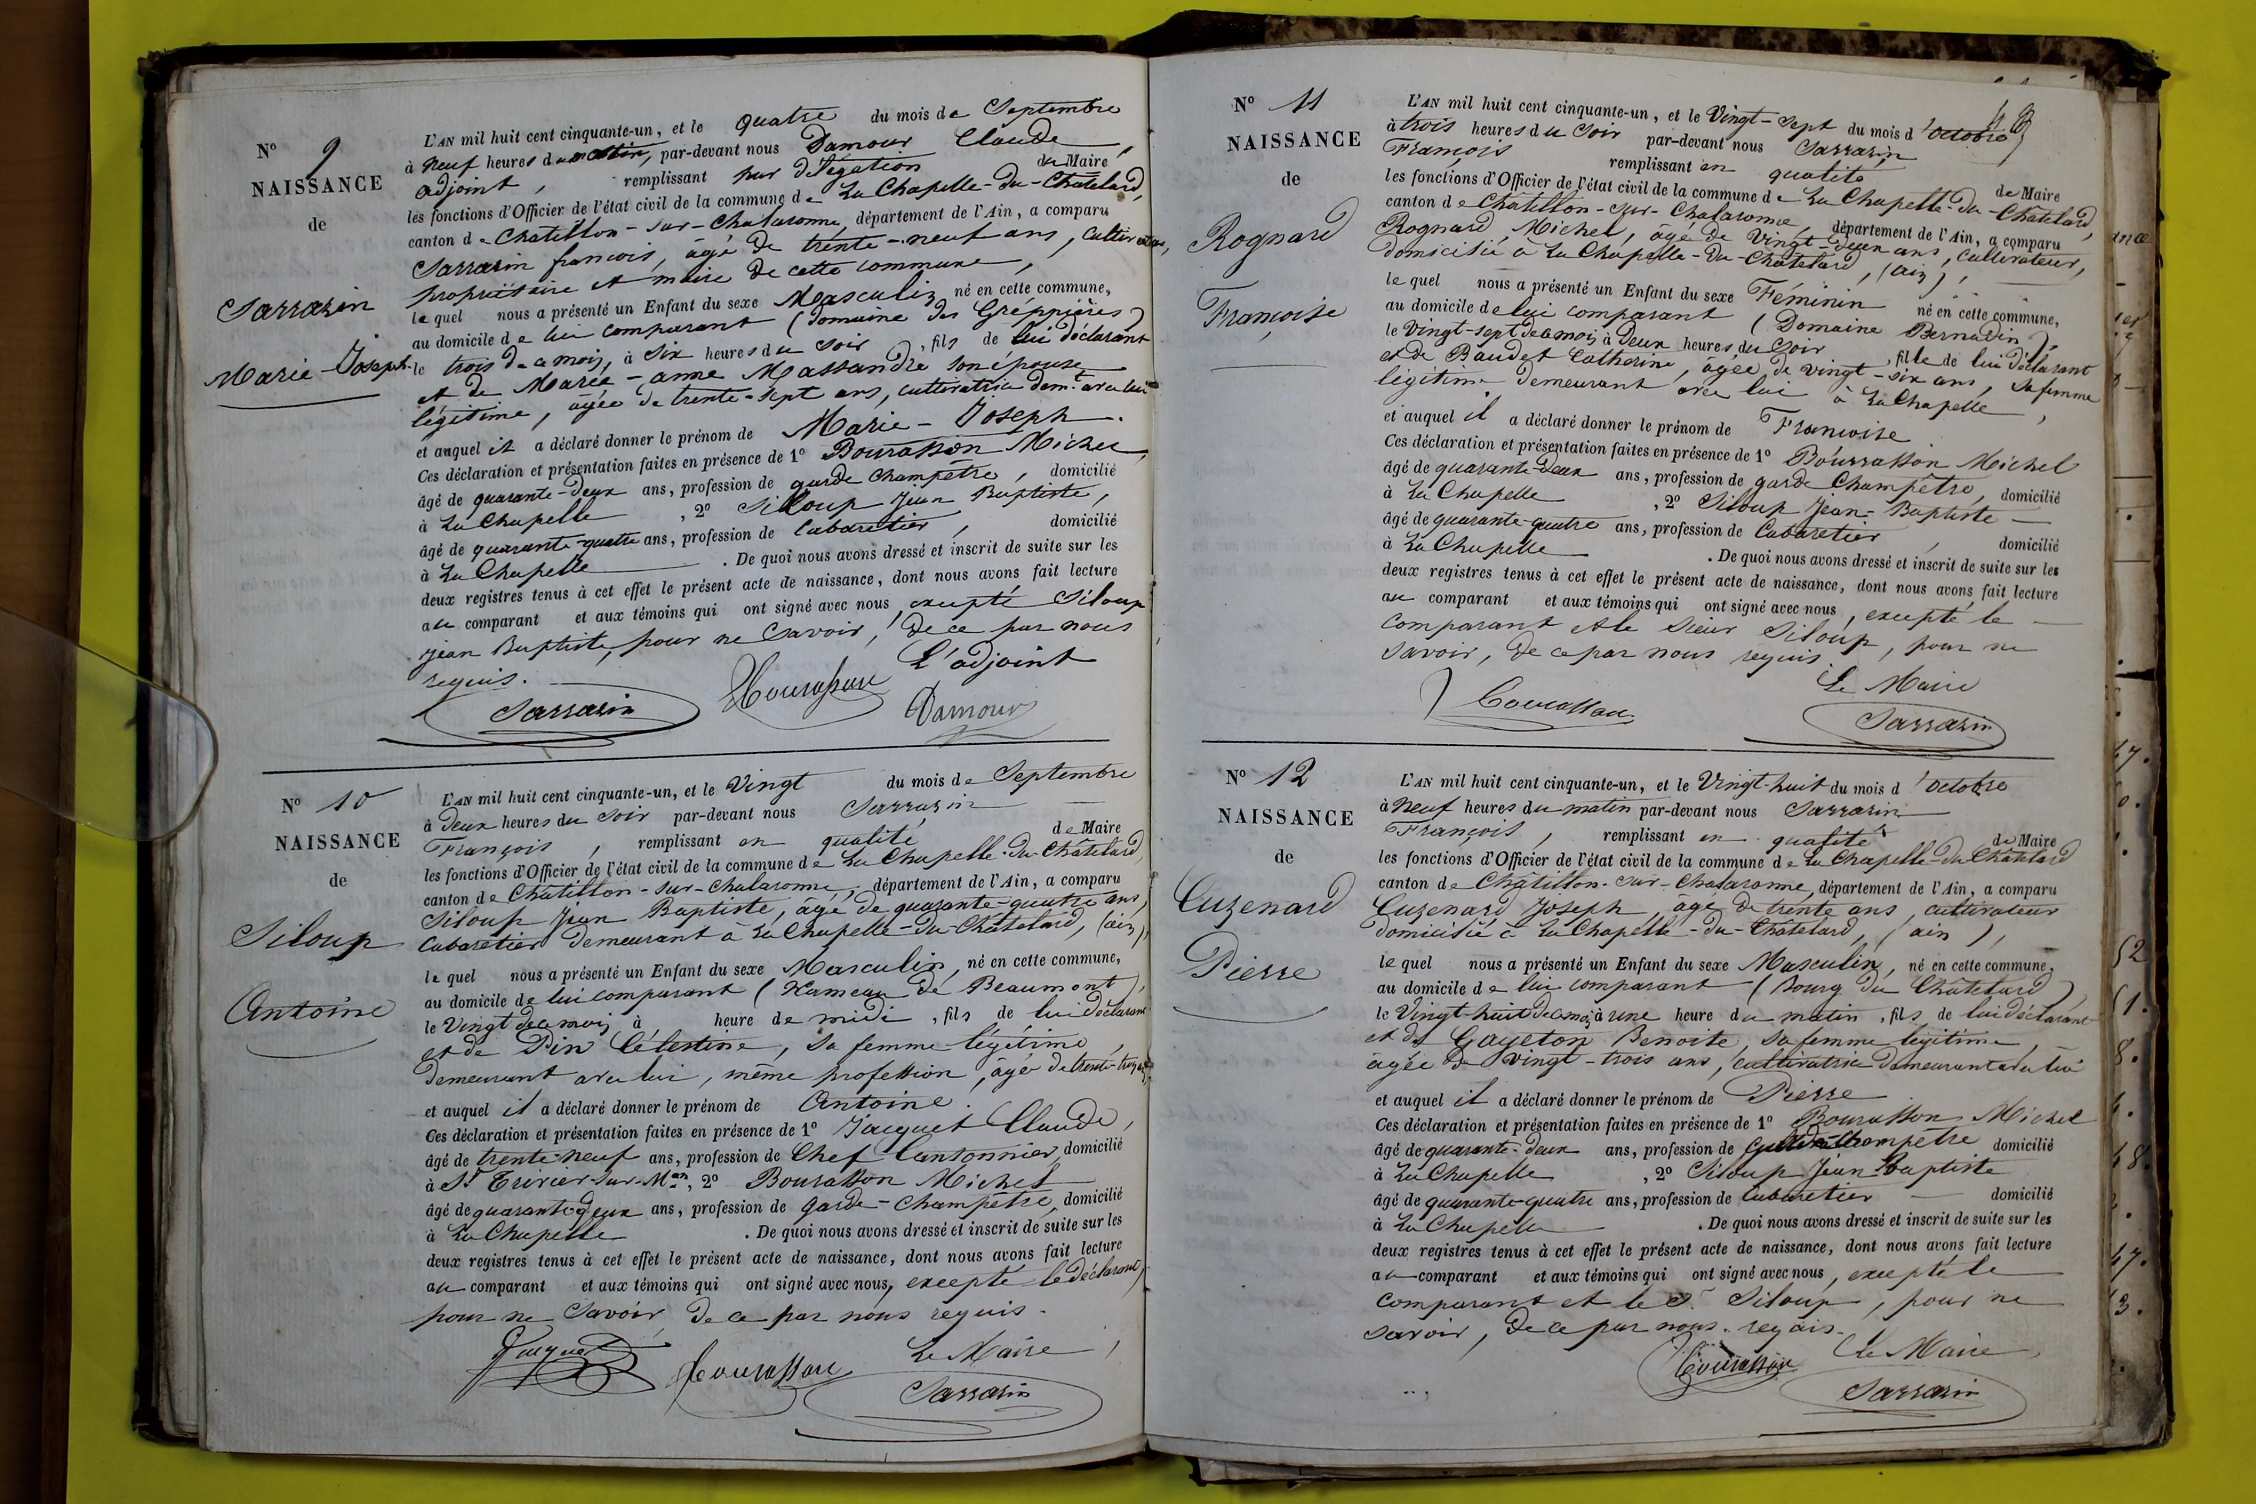 N° 9
NAISSANCE
de
Sarrasin
Marie-Joseph
L'AN mil huit cent cinquante-un, et le quatre du mois de Septembre
à neuf heures du matin, par-devant nous Damour Claude,
adjoint, remplissant par délégation de Maire
les fonctions d'Officier de l'état civil de la commune de La Chapelle-du-Châtelard,
canton de Chatillon-sur-Chalaronne, département de l'Ain, a comparu
Sarrasin francois, âgé de trente-neuf ans, cultivateur,
propriétaire et maire de cette commune,
le quel nous a présenté un Enfant du sexe Masculin, né en cette commune,
au domicile de lui comparant (domaine des Gréppières)
le trois de ce mois, à six heures du soir, fils de lui déclarant
et de Marie-anne Massandre son épouse
légitime, âgée de trente-sept ans, cultivatrice demt. avec lui
et auquel il a déclaré donner le prénom de Marie-Joseph.
Ces déclaration et présentation faites en présence de 1° Bourasson Michel,
âgé de quarante-deux ans, profession de garde champêtre, domicilié
à La Chapelle, 2° Siloup Jean Baptiste,
âgé de quarante-quatre ans, profession de cabaretier, domicilié
à La Chapelle. De quoi nous avons dressé et inscrit de suite sur les
deux registres tenus à cet effet le présent acte de naissance, dont nous avons fait lecture
au comparant et aux témoins qui ont signé avec nous, excepté Siloup
Jean Baptiste, pour ne savoir, de ce par nous
requis.
L'adjoint
Sarrasin Bourasson Damour
N° 10
NAISSANCE
de
Siloup
Antoine
L'AN mil huit cent cinquante-un, et le Vingt du mois de Septembre
à deux heures du soir par-devant nous Sarrasin
François, remplissant en qualité de Maire
les fonctions d'Officier de l'état civil de la commune de La Chapelle-du-Châtelard,
canton de Châtillon-sur-Chalaronne, département de l'Ain, a comparu
Siloup Jean Baptiste, âgé de quarante-quatre ans,
Cabaretier demeurant à La Chapelle-du-Châtelard, (ain),
le quel nous a présenté un Enfant du sexe Masculin, né en cette commune,
au domicile de lui comparant (Hameau de Beaumont),
le Vingt de ce mois, à heure de midi, fils de lui déclarant
et de Pin Célestine, sa femme légitime,
demeurant avec lui, même profession, âgée de trente-trois ans
et auquel il a déclaré donner le prénom de Antoine.
Ces déclaration et présentation faites en présence de 1° Jacquet Claude,
âgé de trente-neuf ans, profession de Chef Cantonnier, domicilié
à St Trivier-sur-Man, 2° Bourasson Michel
âgé de quarante-deux ans, profession de garde-champêtre, domicilié
à La Chapelle. De quoi nous avons dressé et inscrit de suite sur les
deux registres tenus à cet effet le présent acte de naissance, dont nous avons fait lecture
au comparant et aux témoins qui ont signé avec nous, excepté le déclarant,
pour ne savoir, de ce par nous requis.
Le Maire,
Jacquet Bourasson Sarrasin
N° 11
NAISSANCE
de
Rognard
Françoise
L'AN mil huit cent cinquante-un, et le Vingt-sept du mois d'octobre
à trois heures du soir par-devant nous Sarrasin
François remplissant en qualité de Maire
les fonctions d'Officier de l'état civil de la commune de La Chapelle-du-Châtelard,
canton de Châtillon-sur-Chalaronne, département de l'Ain, a comparu
Rognard, Michel, âgé de Vingt-deux ans, cultivateur,
domicilié à La Chapelle-du-Châtelard, (ain),
le quel nous a présenté un Enfant du sexe Féminin né en cette commune,
au domicile de lui comparant (Domaine Bernadin),
le Vingt-sept de ce mois, à Deux heures du soir, fille de lui déclarant
et de Baudet Catherine, âgée de vingt-six ans, sa femme
légitime demeurant avec lui à La Chapelle,
et auquel il a déclaré donner le prénom de Françoise
Ces déclaration et présentation faites en présence de 1° Bourrasson Michel
âgé de quarante-deux ans, profession de garde champêtre, domicilié
à La Chapelle, 2° Siloup Jean-Baptiste
âgé de quarante-quatre ans, profession de Cabaretier, domicilié
à La Chapelle. De quoi nous avons dressé et inscrit de suite sur les
deux registres tenus à cet effet le présent acte de naissance, dont nous avons fait lecture
au comparant et aux témoins qui ont signé avec nous, excepté le
comparant et le sieur Siloup, pour ne
savoir, de ce par nous requis.
Le Maire
Bourassou Sarrasin
N° 12
NAISSANCE
de
Cuzenard
Pierre
L'AN mil huit cent cinquante-un, et le Vingt-huit du mois d'octobre
à neuf heures du matin par-devant nous Sarrasin
François, remplissant en qualité de Maire
les fonctions d'Officier de l'état civil de la commune de La Chapelle-du-Châtelard
canton de Châtillon-sur-Chalaronne, département de l'Ain, a comparu
Cuzenard Joseph, âgé de trente ans, cultivateur
domicilié à La Chapelle-du-Châtelard, (ain),
le quel nous a présenté un Enfant du sexe Masculin, né en cette commune,
au domicile de lui comparant (Bourg du Châtelard)
le Vingt-huit de ce mois, à une heure du matin, fils de lui déclarant
et de Gayeton Benoite, sa femme légitime,
âgée de vingt-trois ans, cultivatrice demeurant avec lui
et auquel il a déclaré donner le prénom de Pierre
Ces déclaration et présentation faites en présence de 1° Bourasson Michel
âgé de quarante-deux ans, profession de garde champêtre domicilié
à La Chapelle, 2° Siloup Jean Baptiste
âgé de quarante-quatre ans, profession de Cabaretier domicilié
à La Chapelle. De quoi nous avons dressé et inscrit de suite sur les
deux registres tenus à cet effet le présent acte de naissance, dont nous avons fait lecture
au comparant et aux témoins qui ont signé avec nous, excepté le
comparant et le Sr Siloup, pour ne
savoir, de ce par nous requis.
Le Maire,
Bourassou Sarrasin